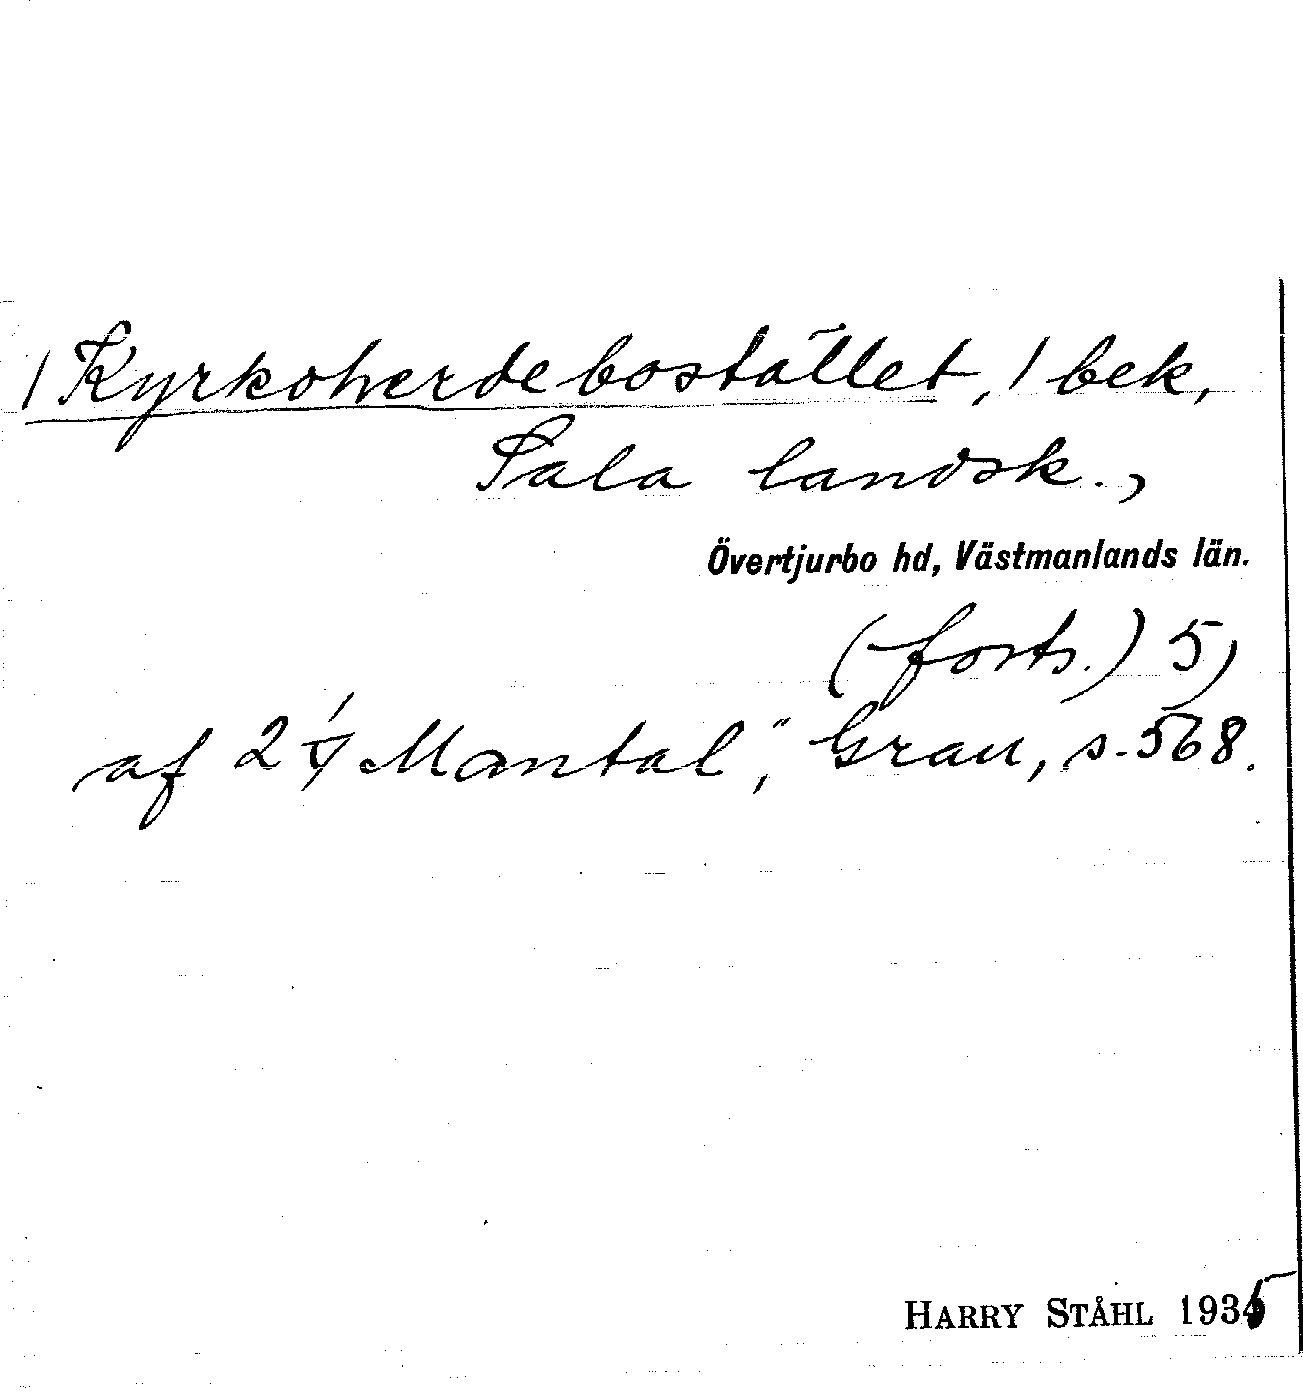 /Kyrkoherdebostället, / bek,
Sala landsk.,
Övertjurbo hd, Västmanlands län.
(forts.) 5)
af 2 1/4 Mantal", Grau, s. 568.
HARRY STÅHL 1935